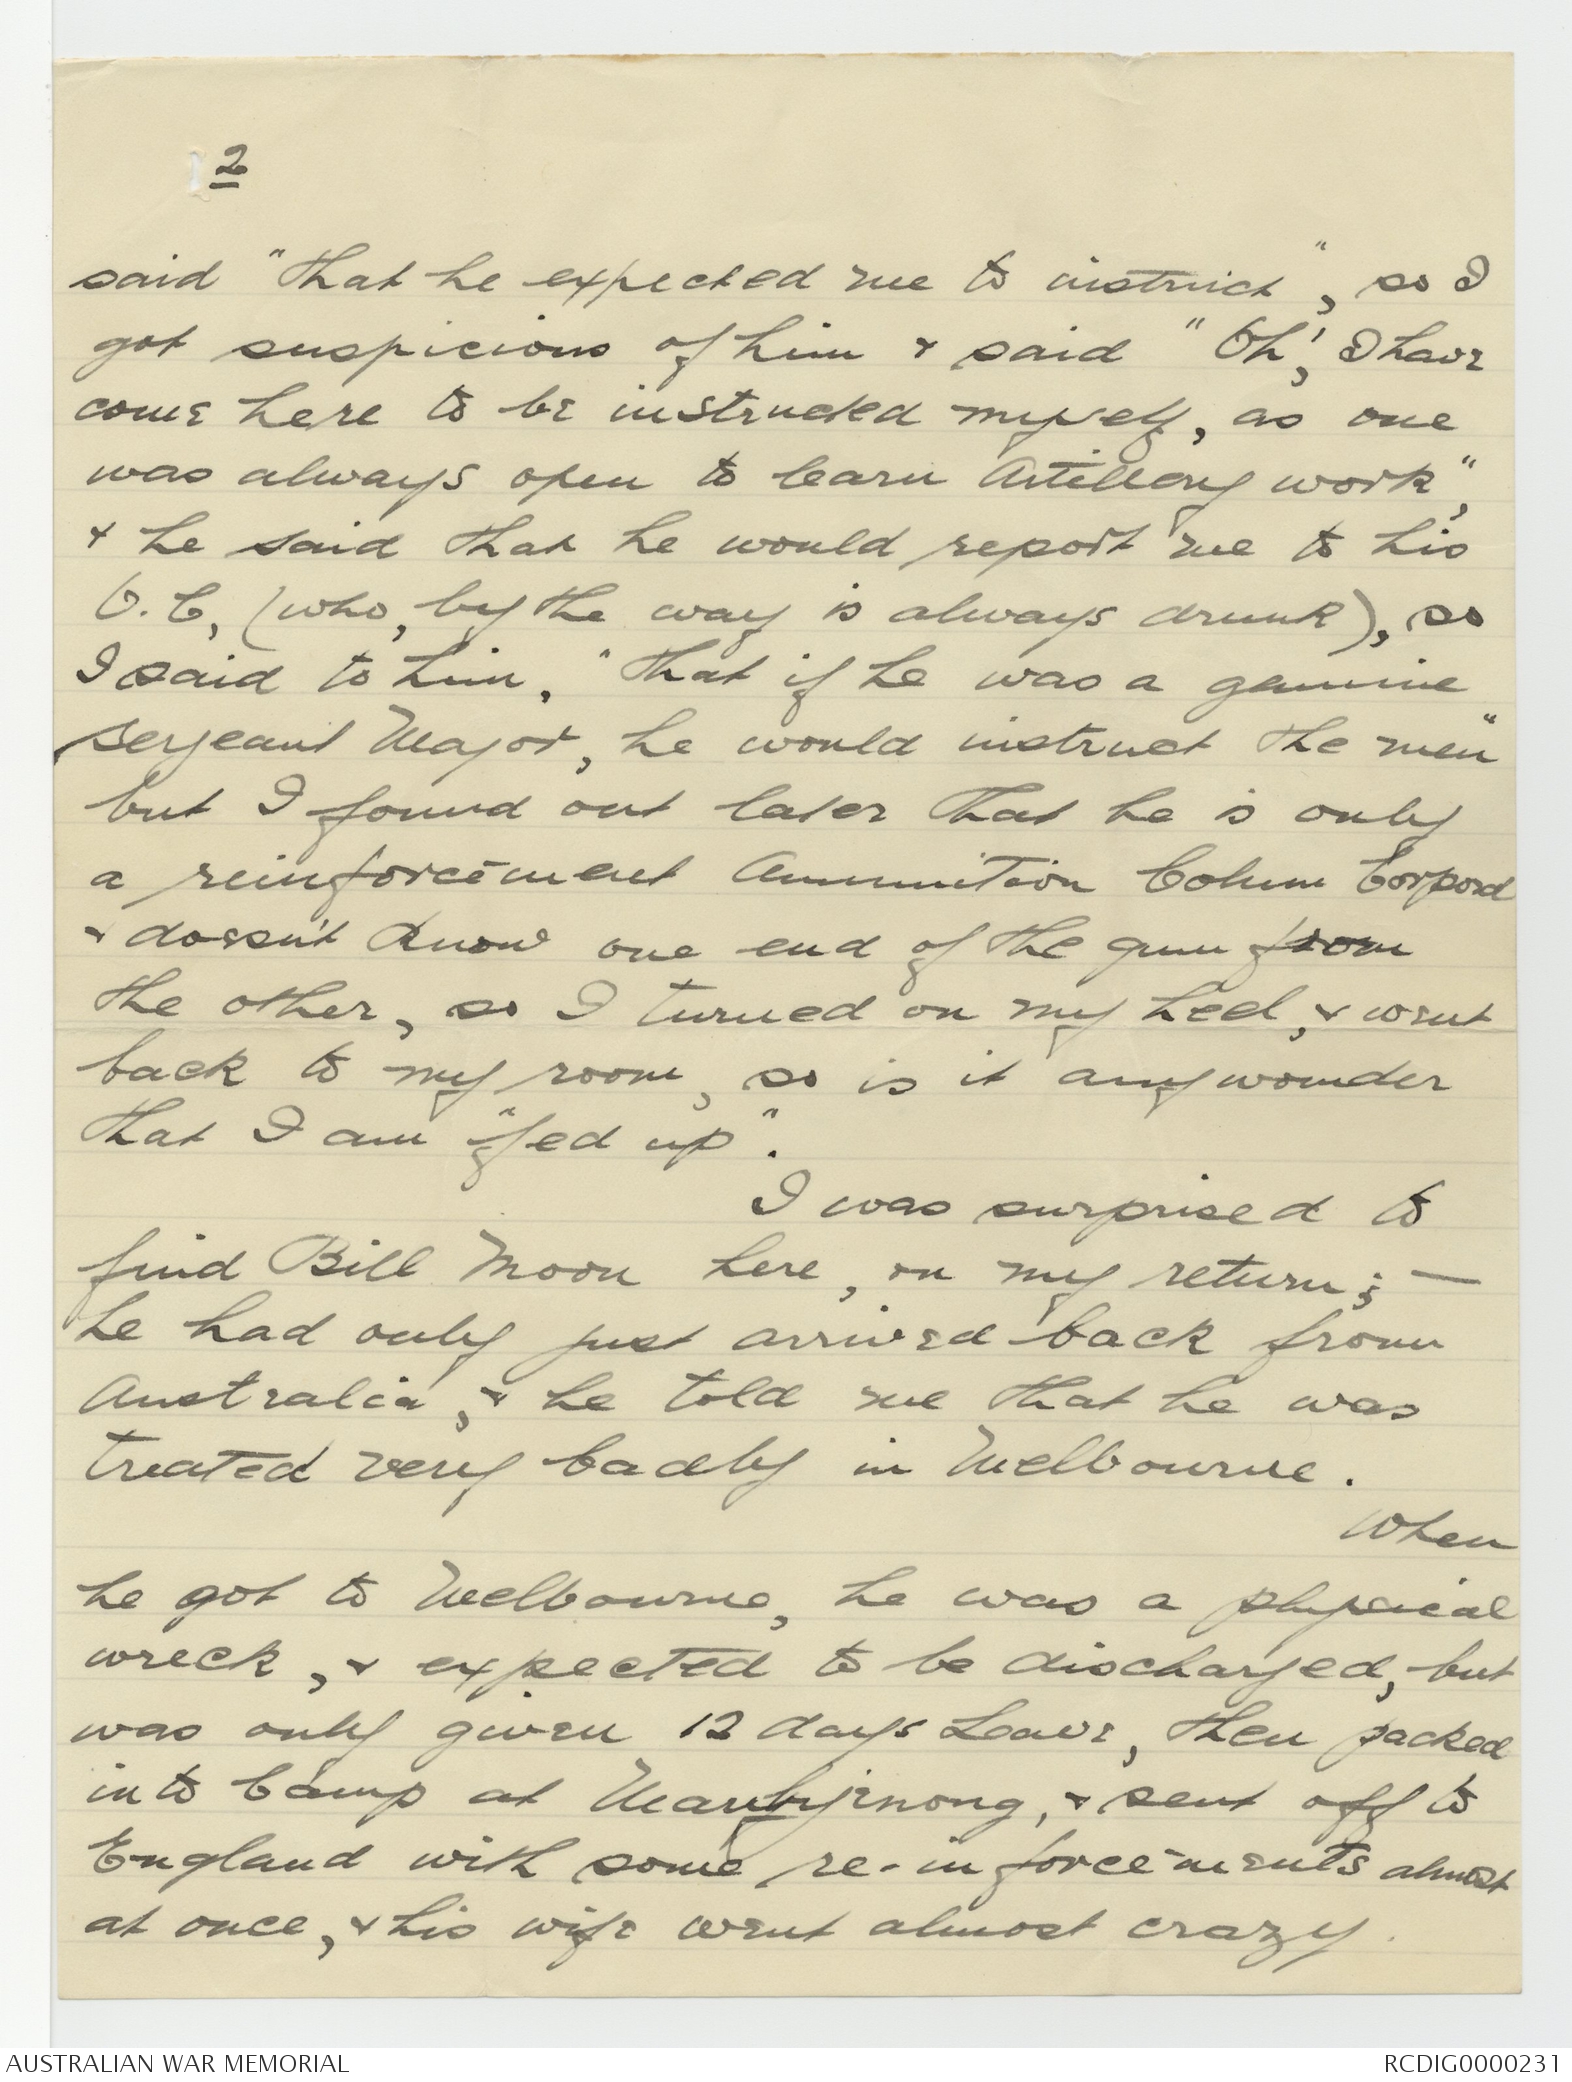 2
said "that he expected me to instruct", so I
got suspicious of him & said "Oh', I have
come here to be instructed myself, as one
was always open to learn Artillery work",
& he said that he would report me to his
O.C, (who, by the way is always drunk), so
I said to him, "that if he was a genuine
Sergeant Major, he would instruct the men"
but I found out later that he is only
a reinforcement Ammunition Colum Corporal
& doesn't know one end of the gun from
the other, so I turned on my heel, & went
back to my room, so is it any wonder
that I am "fed up".
I was surprised to
find Bill Moon here, on my return; —
he had only just arrived back from
Australia, & he told me that he was
treated very badly in Melbourne.
When
he got to Melbourne, he was a physical
wreck, & expected to be discharged, but
was only given 12 days Leave, then packed
into Camp at Maribyrnong, & sent off to
England with some re-inforcements almost
at once, & his wife went almost crazy.
AUSTRALIAN WAR MEMORIAL
RCDIG0000231